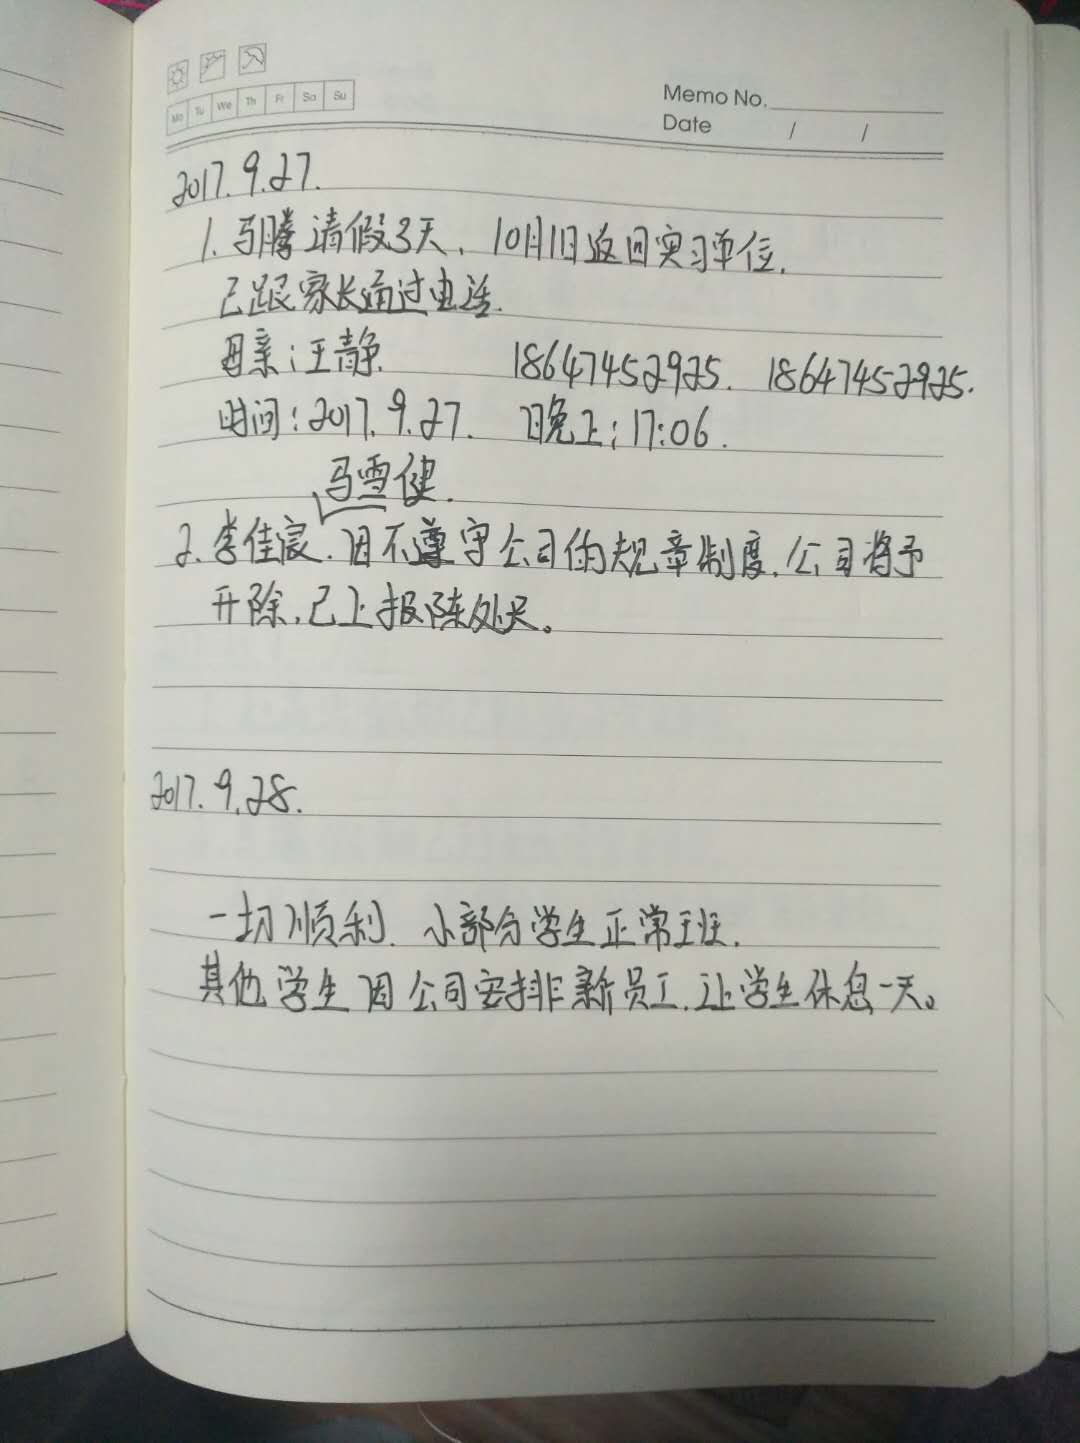 Mo Tu We Th Fr Sa Su
Memo No.
Date / /
2017.9.27.
1. 马腾请假3天，10月1日返回实习单位.
已跟家长通过电话.
母亲：王静. 18647452925. 18647452925.
时间：2017.9.27. 日晚上：17:06.
马雪健.
2. 李佳宸. 因不遵守公司的规章制度，公司将予
开除，已上报陈处长。
2017.9.28.
一切顺利. 小部分学生正常上班.
其他学生因公司安排新员工，让学生休息一天。